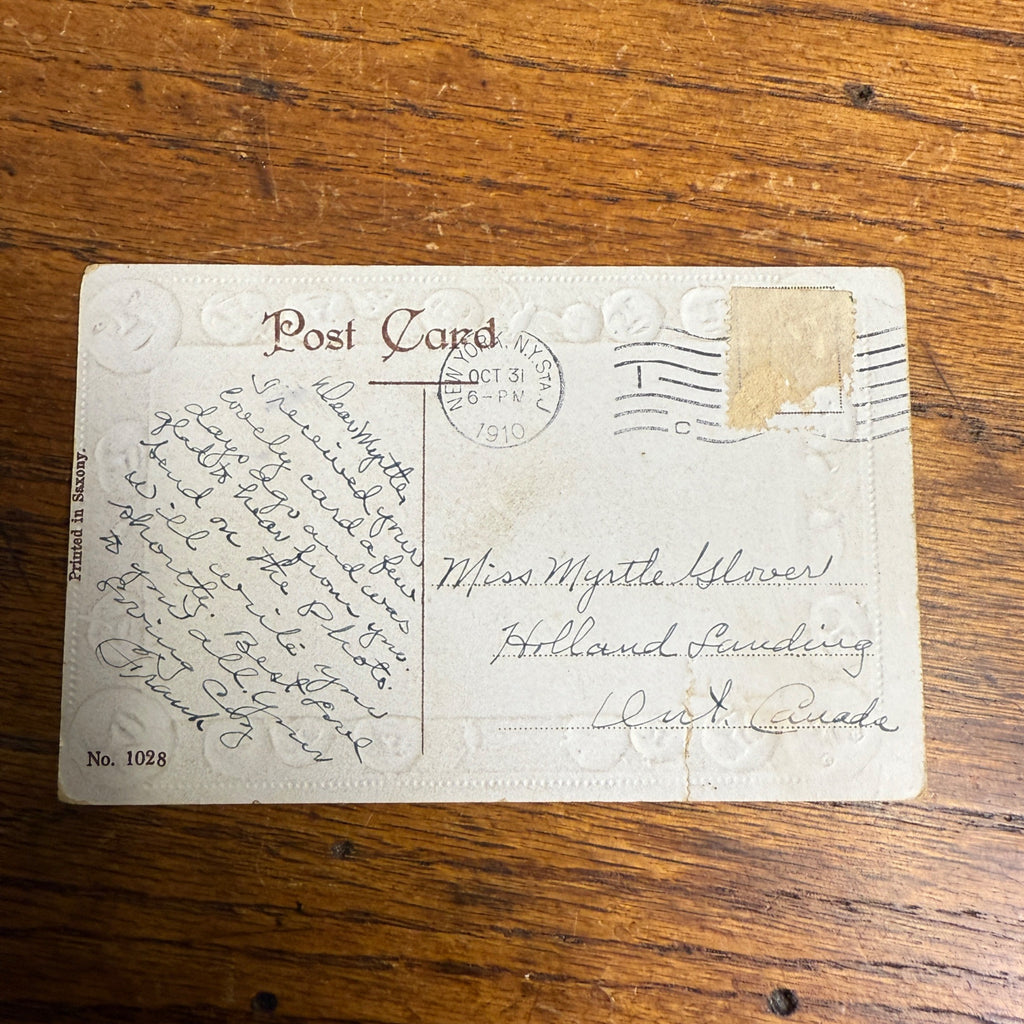 Post Card
NEW YORK, N.Y. STA. J
OCT 31
6-PM
1910
1
C
Dear Myrtle,
I received your
lovely card a few
days ago and was
glad to hear from you.
Send on the Photo.
will write you
shortly. Best love
to you all. Your
loving
Frank
Miss Myrtle Glover
Holland Landing
Ont. Canada
Printed in Saxony.
No. 1028